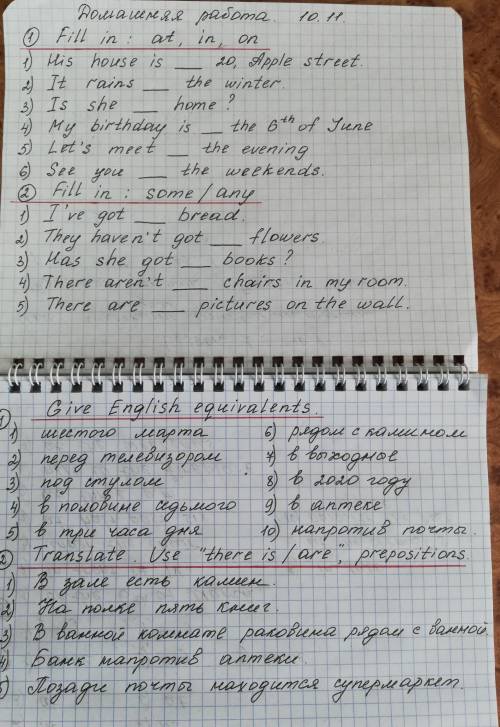 Домашняя работа. 10.11.
① Fill in: at, in, on
1) His house is __ 20, Apple street.
2) It rains __ the winter.
3) Is she __ home?
4) My birthday is _ the 6th of June
5) Let's meet _ the evening
6) See you __ the weekends.
② Fill in: some/any
1) I've got __ bread.
2) They haven't got __ flowers
3) Has she got __ books?
4) There aren't __ chairs in my room.
5) There are __ pictures on the wall.
① Give English equivalents.
1) шестого марта
2) перед телевизором
3) под стулом
4) в половине седьмого
5) в три часа дня
6) рядом с камином
7) в выходные
8) в 2020 году
9) в аптеке
10) напротив почты.
② Translate. Use "there is/are", prepositions.
1) В зале есть камин.
2) На полке пять книг.
3) В ванной комнате раковина рядом с ванной.
4) Банк напротив аптеки.
5) Позади почты находится супермаркет.